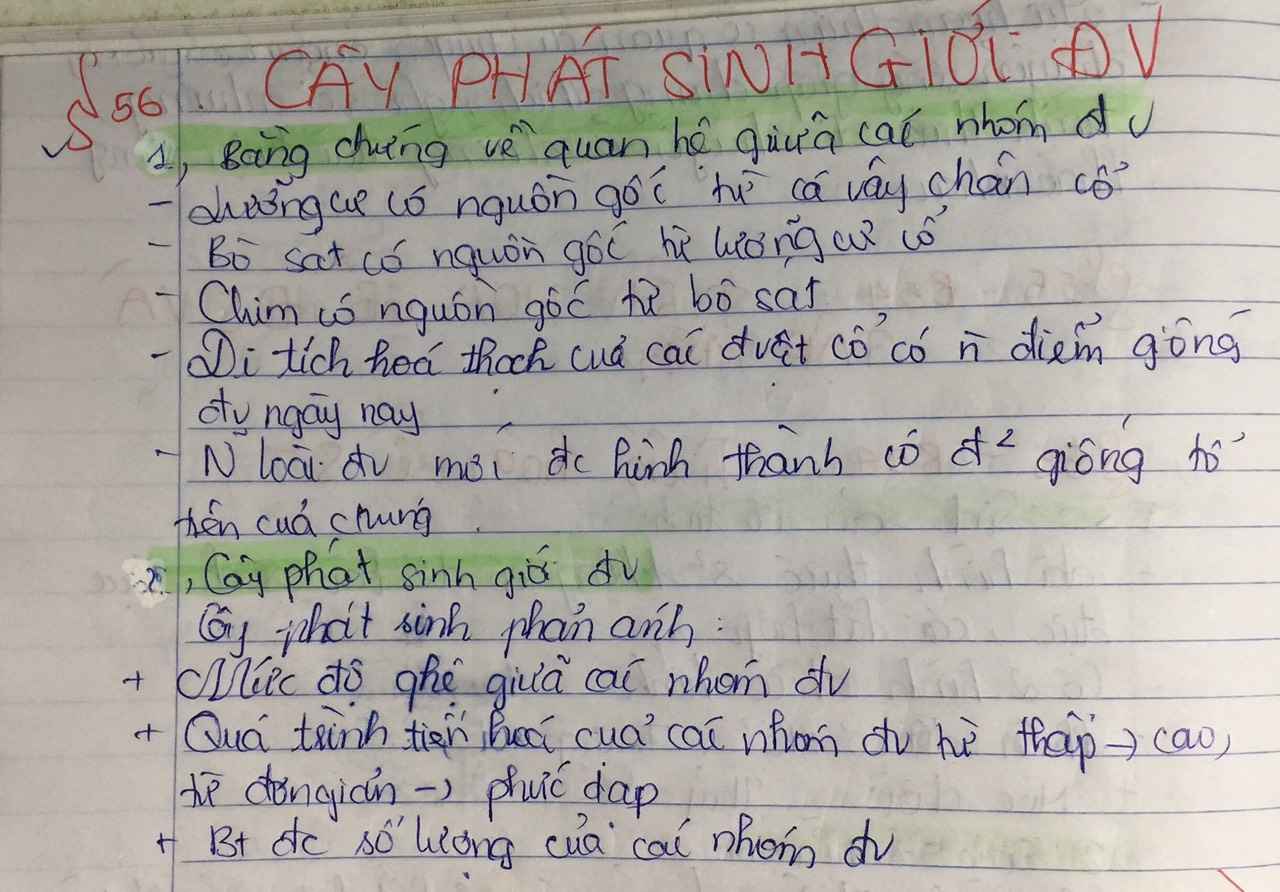 § 56 CÂY PHÁT SINH GIỚI ĐV
1, Bằng chứng về quan hệ giữa các nhóm đv
- Lưỡng cư có nguồn gốc từ cá vây chân cổ
- Bò sát có nguồn gốc từ lưỡng cư cổ
- Chim có nguồn gốc từ bò sát
- Di tích hoá thạch của các đvật cổ có ñ điểm giống
đv ngày nay
- Ñ loài đv mới đc hình thành có đ² giống tổ
tiên của chúng.
2, Cây phát sinh giới đv
Cây phát sinh phản ánh:
+ Mức độ qhệ giữa các nhóm đv
+ Quá trình tiến hoá của các nhóm đv từ thấp → cao,
từ đơn giản → phức dạp
+ Bt đc số lượng của các nhóm đv